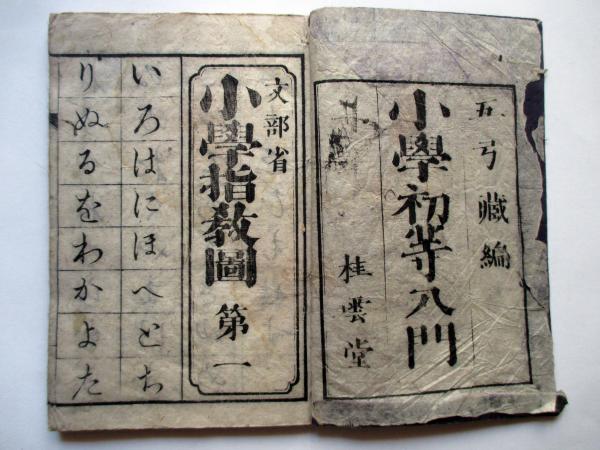 五弓蔵編
小學初等入門
桂雲堂
文部省
小學指教圖 第一
いろはにほへとち
りぬるをわかよた